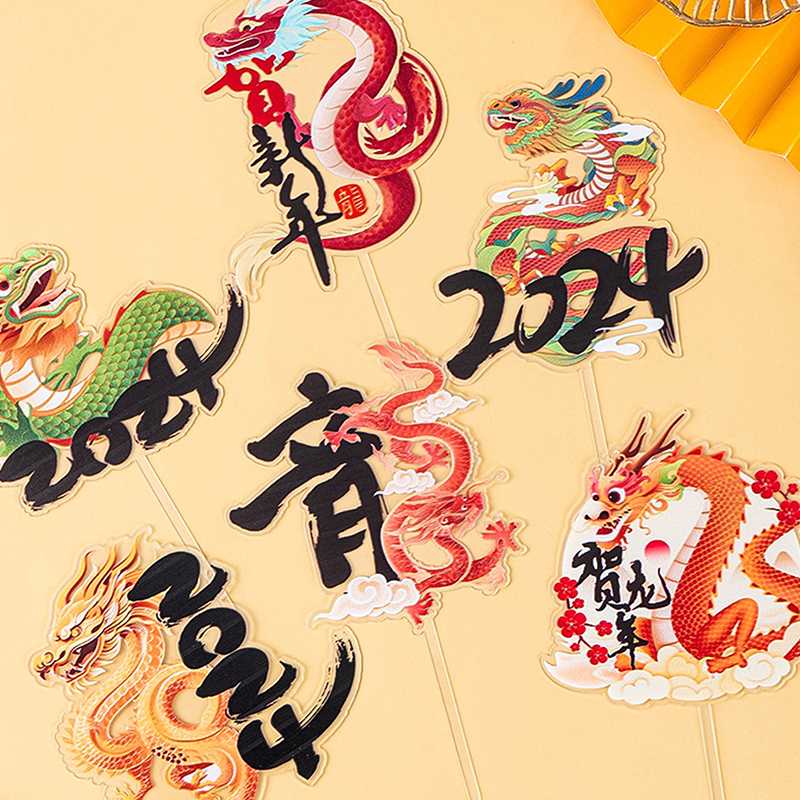 贺新年
龍
2024
2024
龍
贺龙年
2024